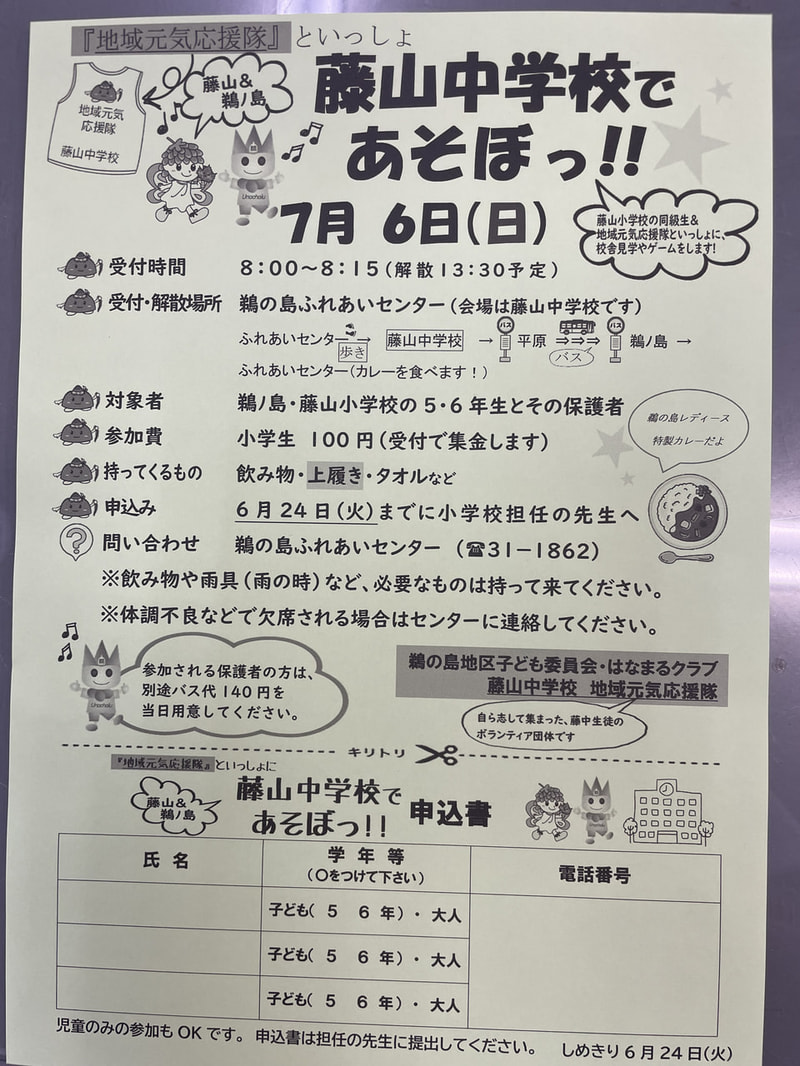 『地域元気応援隊』といっしょ
地域元気
応援隊
藤山中学校
藤山&
鵜ノ島
藤山中学校で
あそぼっ!!
7月 6日(日)
藤山小学校の同級生&
地域元気応援隊といっしょに、
校舎見学やゲームをします!
受付時間 8:00~8:15(解散13:30予定)
受付・解散場所 鵜の島ふれあいセンター(会場は藤山中学校です)
ふれあいセンター → 藤山中学校 → バス 平原 ⇒⇒⇒ バス 鵜ノ島 →
歩き バス
ふれあいセンター(カレーを食べます!)
対象者 鵜ノ島・藤山小学校の5・6年生とその保護者
参加費 小学生 100円(受付で集金します)
鵜の島レディース
特製カレーだよ
持ってくるもの 飲み物・上履き・タオルなど
申込み 6月24日(火)までに小学校担任の先生へ
? 問い合わせ 鵜の島ふれあいセンター (☎31-1862)
※飲み物や雨具(雨の時)など、必要なものは持って来てください。
※体調不良などで欠席される場合はセンターに連絡してください。
参加される保護者の方は、
別途バス代140円を
当日用意してください。
鵜の島地区子ども委員会・はなまるクラブ
藤山中学校 地域元気応援隊
自ら志して集まった、藤中生徒の
ボランティア団体です
キリトリ
『地域元気応援隊』といっしょに
藤山&
鵜ノ島
藤山中学校で
あそぼっ!!
申込書
氏名 学年等 電話番号
(○をつけて下さい)
子ども( 5 6 年)・ 大人
子ども( 5 6 年)・ 大人
子ども( 5 6 年)・ 大人
児童のみの参加もOKです。申込書は担任の先生に提出してください。 しめきり6月24日(火)